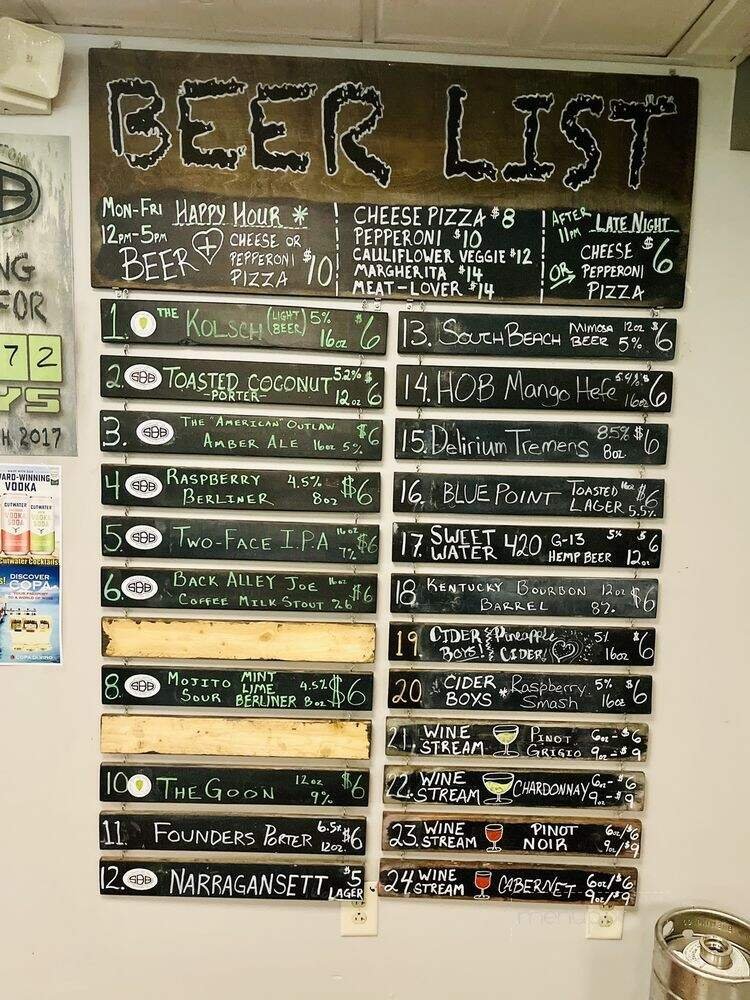 BEER LIST
MON-FRI HAPPY HOUR *
12PM-5PM
BEER + CHEESE OR
PEPPERONI
PIZZA $10
CHEESE PIZZA $8
PEPPERONI $10
CAULLIFLOWER VEGGIE $12
MARGHERITA $14
MEAT-LOVER $14
AFTER
11PM
LATE NIGHT
CHEESE
OR PEPPERONI
PIZZA
$6
1. THE KOLSCH (LIGHT BEER) 5% 16oz $6
2. SBB TOASTED COCONUT 5.2% $6
-PORTER- 12oz
3. SBB THE "AMERICAN" OUTLAW $6
AMBER ALE 16oz 5%
4. SBB RASPBERRY 4.5% $6
BERLINER 8oz
5. SBB TWO-FACE I.P.A 16oz 7% $6
6. SBB BACK ALLEY JOE 16oz $6
COFFEE MILK STOUT
8. SBB MOJITO MINT 4.5% $6
SOUR LIME
BERLINER 8oz
10. THE GOON 12oz 9% $6
11. FOUNDERS PORTER 6.5% 12oz. $6
12. SBB NARRAGANSETT $5
LAGER
13. SOUTH BEACH MIMOSA 12oz $6
BEER 5%
14. HOB Mango Hefe 5.4% 16oz $6
15. Delirium Tremens 8.5% 8oz $6
16. BLUE POINT TOASTED 16oz $6
LAGER 5.5%
17. SWEET 420 G-13 5% $6
WATER HEMP BEER 12oz
18. KENTUCKY BOURBON 12oz $6
BARREL 8%
19. CIDER Pineapple 5% $6
BOYS! CIDER! 16oz
20. CIDER * Raspberry 5% $6
BOYS Smash 16oz
21. WINE PINOT 6oz-$6
STREAM GRIGIO 9oz-$9
22. WINE CHARDONNAY 6oz-$6
STREAM 9oz-$9
23. WINE PINOT 6oz/$6
STREAM NOIR 9oz/$9
24 WINE CABERNET 6oz/$6
STREAM 9oz/$9
B
NG
FOR
72
YS
H 2017
ARD-WINNING
VODKA
CUTWATER
CUTWATER
VODKA
SODA
VODKA
SODA
Cutwater Cocktails!
DISCOVER
COPA
YOUR PASSPORT
TO A WORLD OF WINE
COPA DI VINO